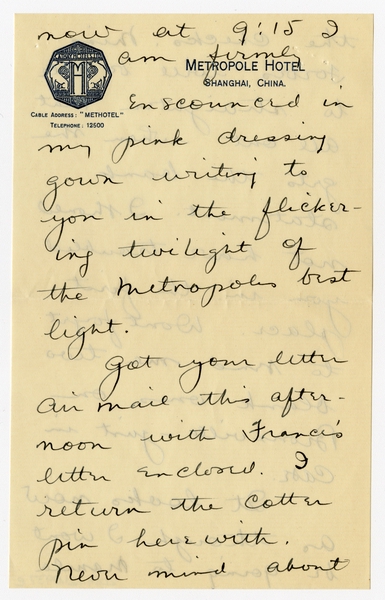 now at 9:15 I
am firmly
METROPOLE HOTEL
SHANGHAI, CHINA.
CABLE ADDRESS: "METHOTEL"
TELEPHONE: 12500
Enscounced in
my pink dressing
gown writing to
you in the flicker-
ing twilight of
the Metropoles best
light.
Got your letter
air mail this after-
noon with Francis's
letter enclosed. I
return the cotter
pin herewith.
Never mind about